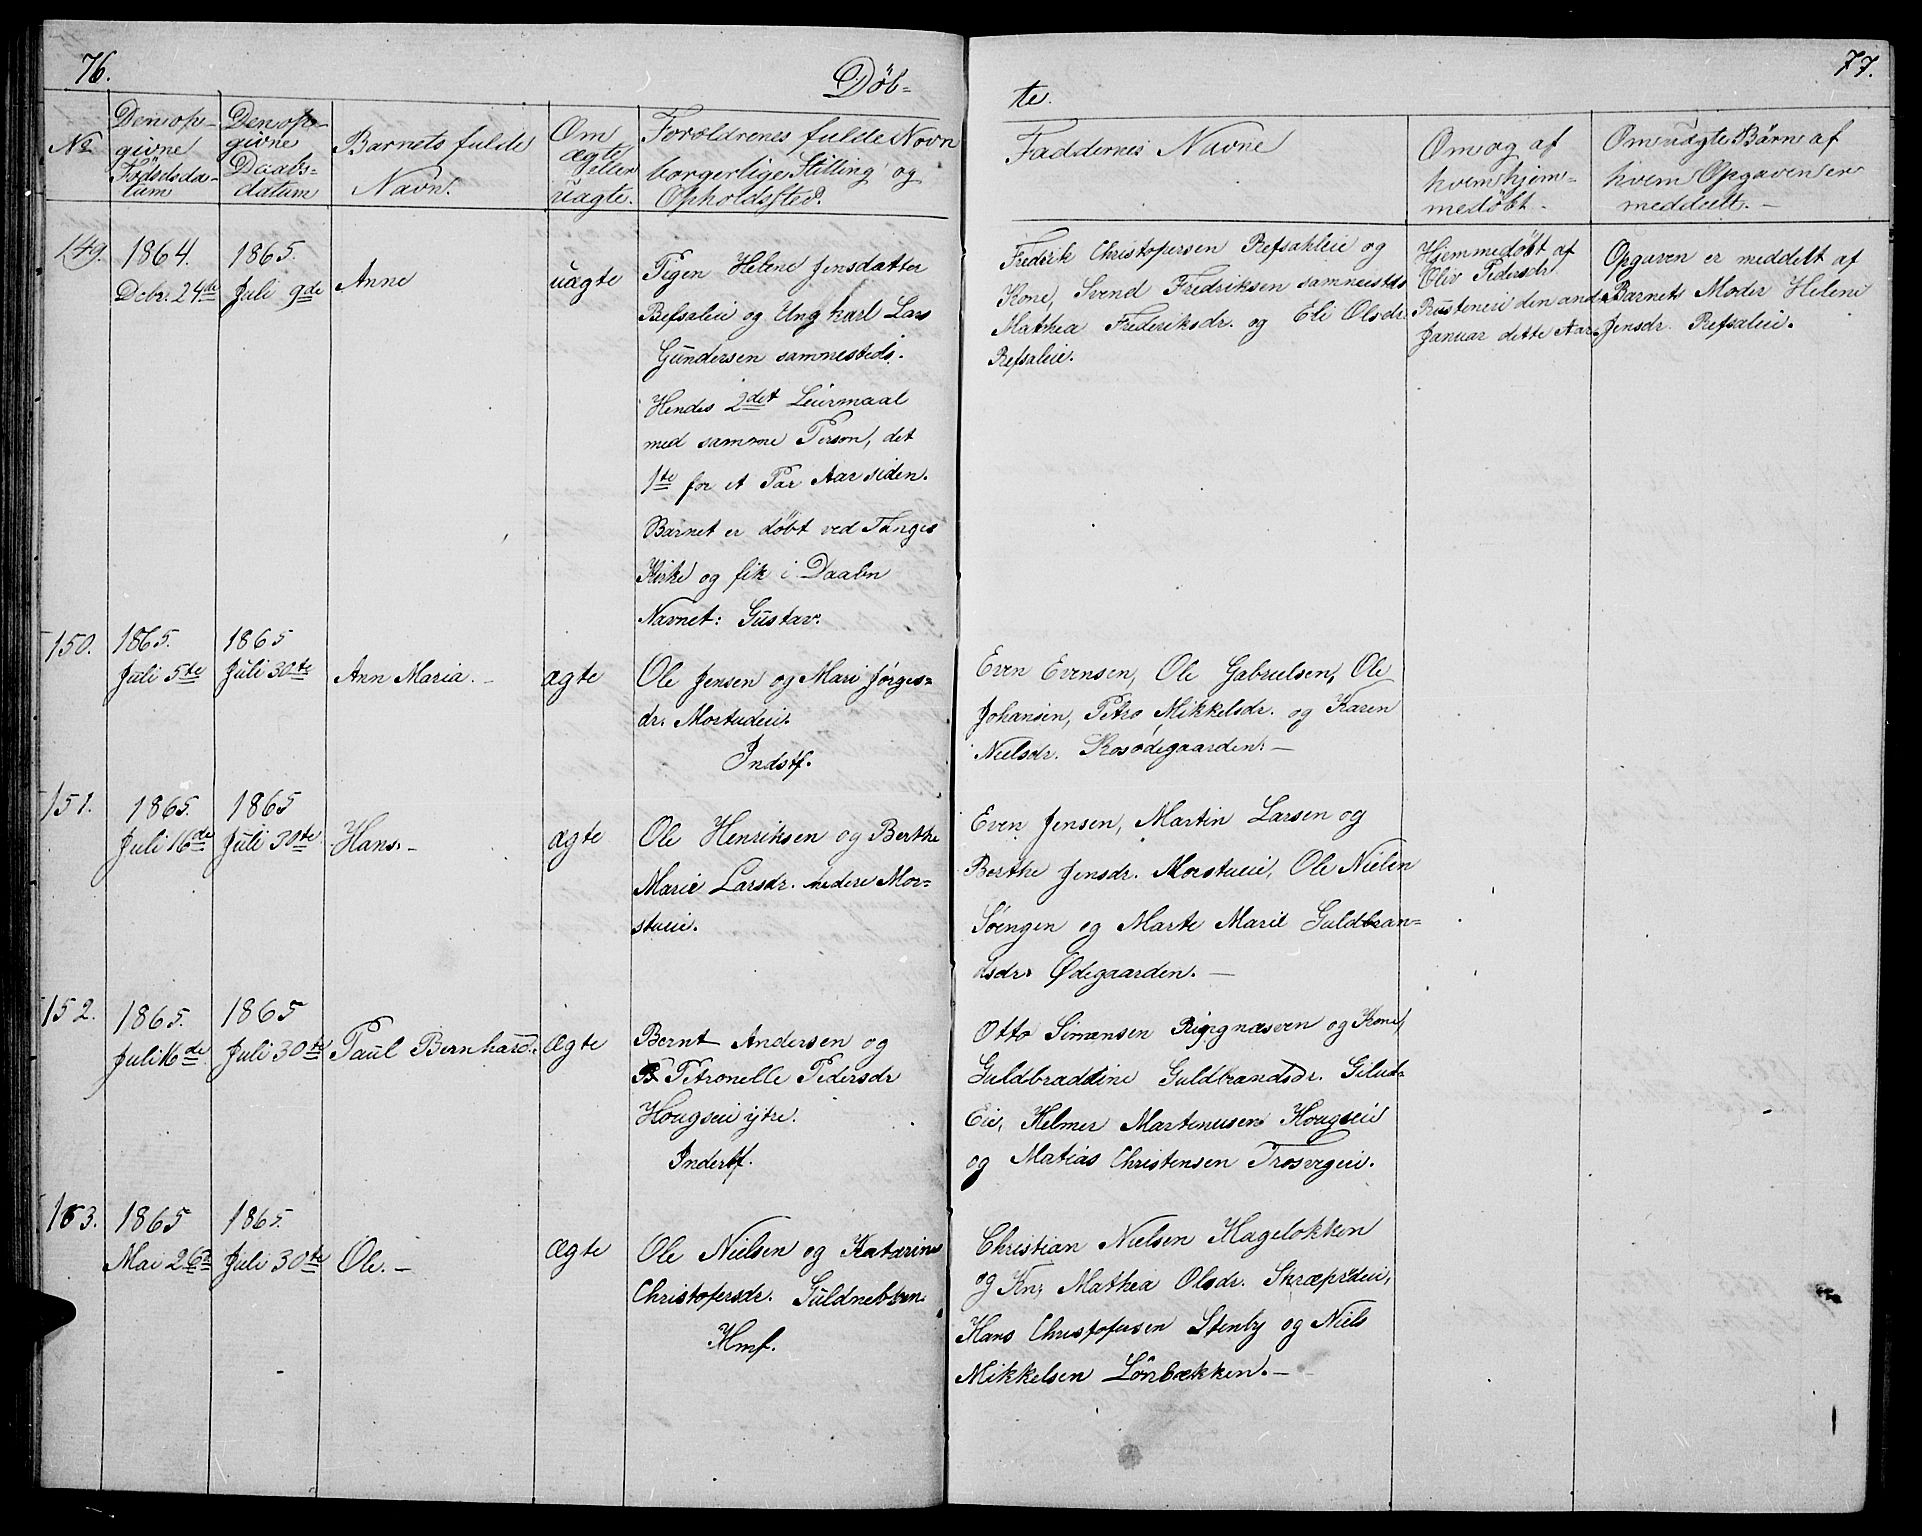 76.
Döb-
te.
77.
No
Den op-
givne
Födselsda-
tum
Den op-
givne
Daabs-
datum
Barnets fulde
Navn.
Om
ægte
eller
uægte.
Forældrenes fulde Navn
borgerlige Stilling og
Opholdssted.
Faddernes Navne
Om og af
hvem hjem-
medøbt.
Om uægte Börn af
hvem Opgaven er
meddeelt. -
149.
1864.
Decbr. 24de
1865.
Juli 9de
Anne
uægte
Pigen Helene Jensdatter
Refsaleie og Ungkarl Lars
Gundersen sammesteds.
Hendes 2det Leiermaal
med samme Person, det
1te for et Par Aar siden.
Barnet er døbt ved Fanges
Kirke og fik i Daaben
Navnet: Gustav.
Frederik Christopersen Refsahleie og
Kone, Svend Fredriksen sammesteds
Mathea Frederiksdr. og Eli Olsdr
Refsaleie.
Hjemmedøbt af
Oliv Pedersdr
Rusteneie den anden
Januar dette Aar.
Opgaven er meddelt af
Barnets Moder Helene
Jensdr. Refsaleie.
150.
1865.
Juli 5te
1865
Juli 30te
Ann Maria. -
ægte
Ole Jensen og Mari Jörges-
dr. Mortueie.
Indstf.
Even Evensen, Ole Gabrielsen, Ole
Johansen, Petra Mikkelsdr. og Karen
Nielsdr. Rosødegaarden. -
151.
1865.
Juli 16de
1865
Juli 30te
Hans. -
ægte
Ole Henriksen og Berthe
Marie Larsdr. nedere Mor-
stueie.
Even Jensen, Martin Larsen og
Berthe Jensdr. Morstueie, Ole Nielsen
Söengen og Marte Marie Guldbran-
dsdr. Ødegaarden. -
152.
1865.
Juli 16de
1865
Juli 30te
Paul Bernhard.
Ægte
Bernt Andersen og
Petronelle Pedersdr
Hougseie ytre.
Inderstf.
Otto Simensen Ringnæsven og Kone
Guldbraddine Guldbrandsdr. Gilud-
Eie, Helmer Martinusen Hougseie
og Matias Christensen Trosvigeie.
153.
1865
Mai 26de
1865.
Juli 30te
Ole. -
Ægte
Ole Nielsen og Katarine
Christofersdr. Guldnebben.
Hmf.
Christian Nielsen Hagelökken
og Kn. Mathea Olsdr. Skræpredeie,
Hans Christofersen Stenby og Niels
Mikkelsen Lönbækken. -